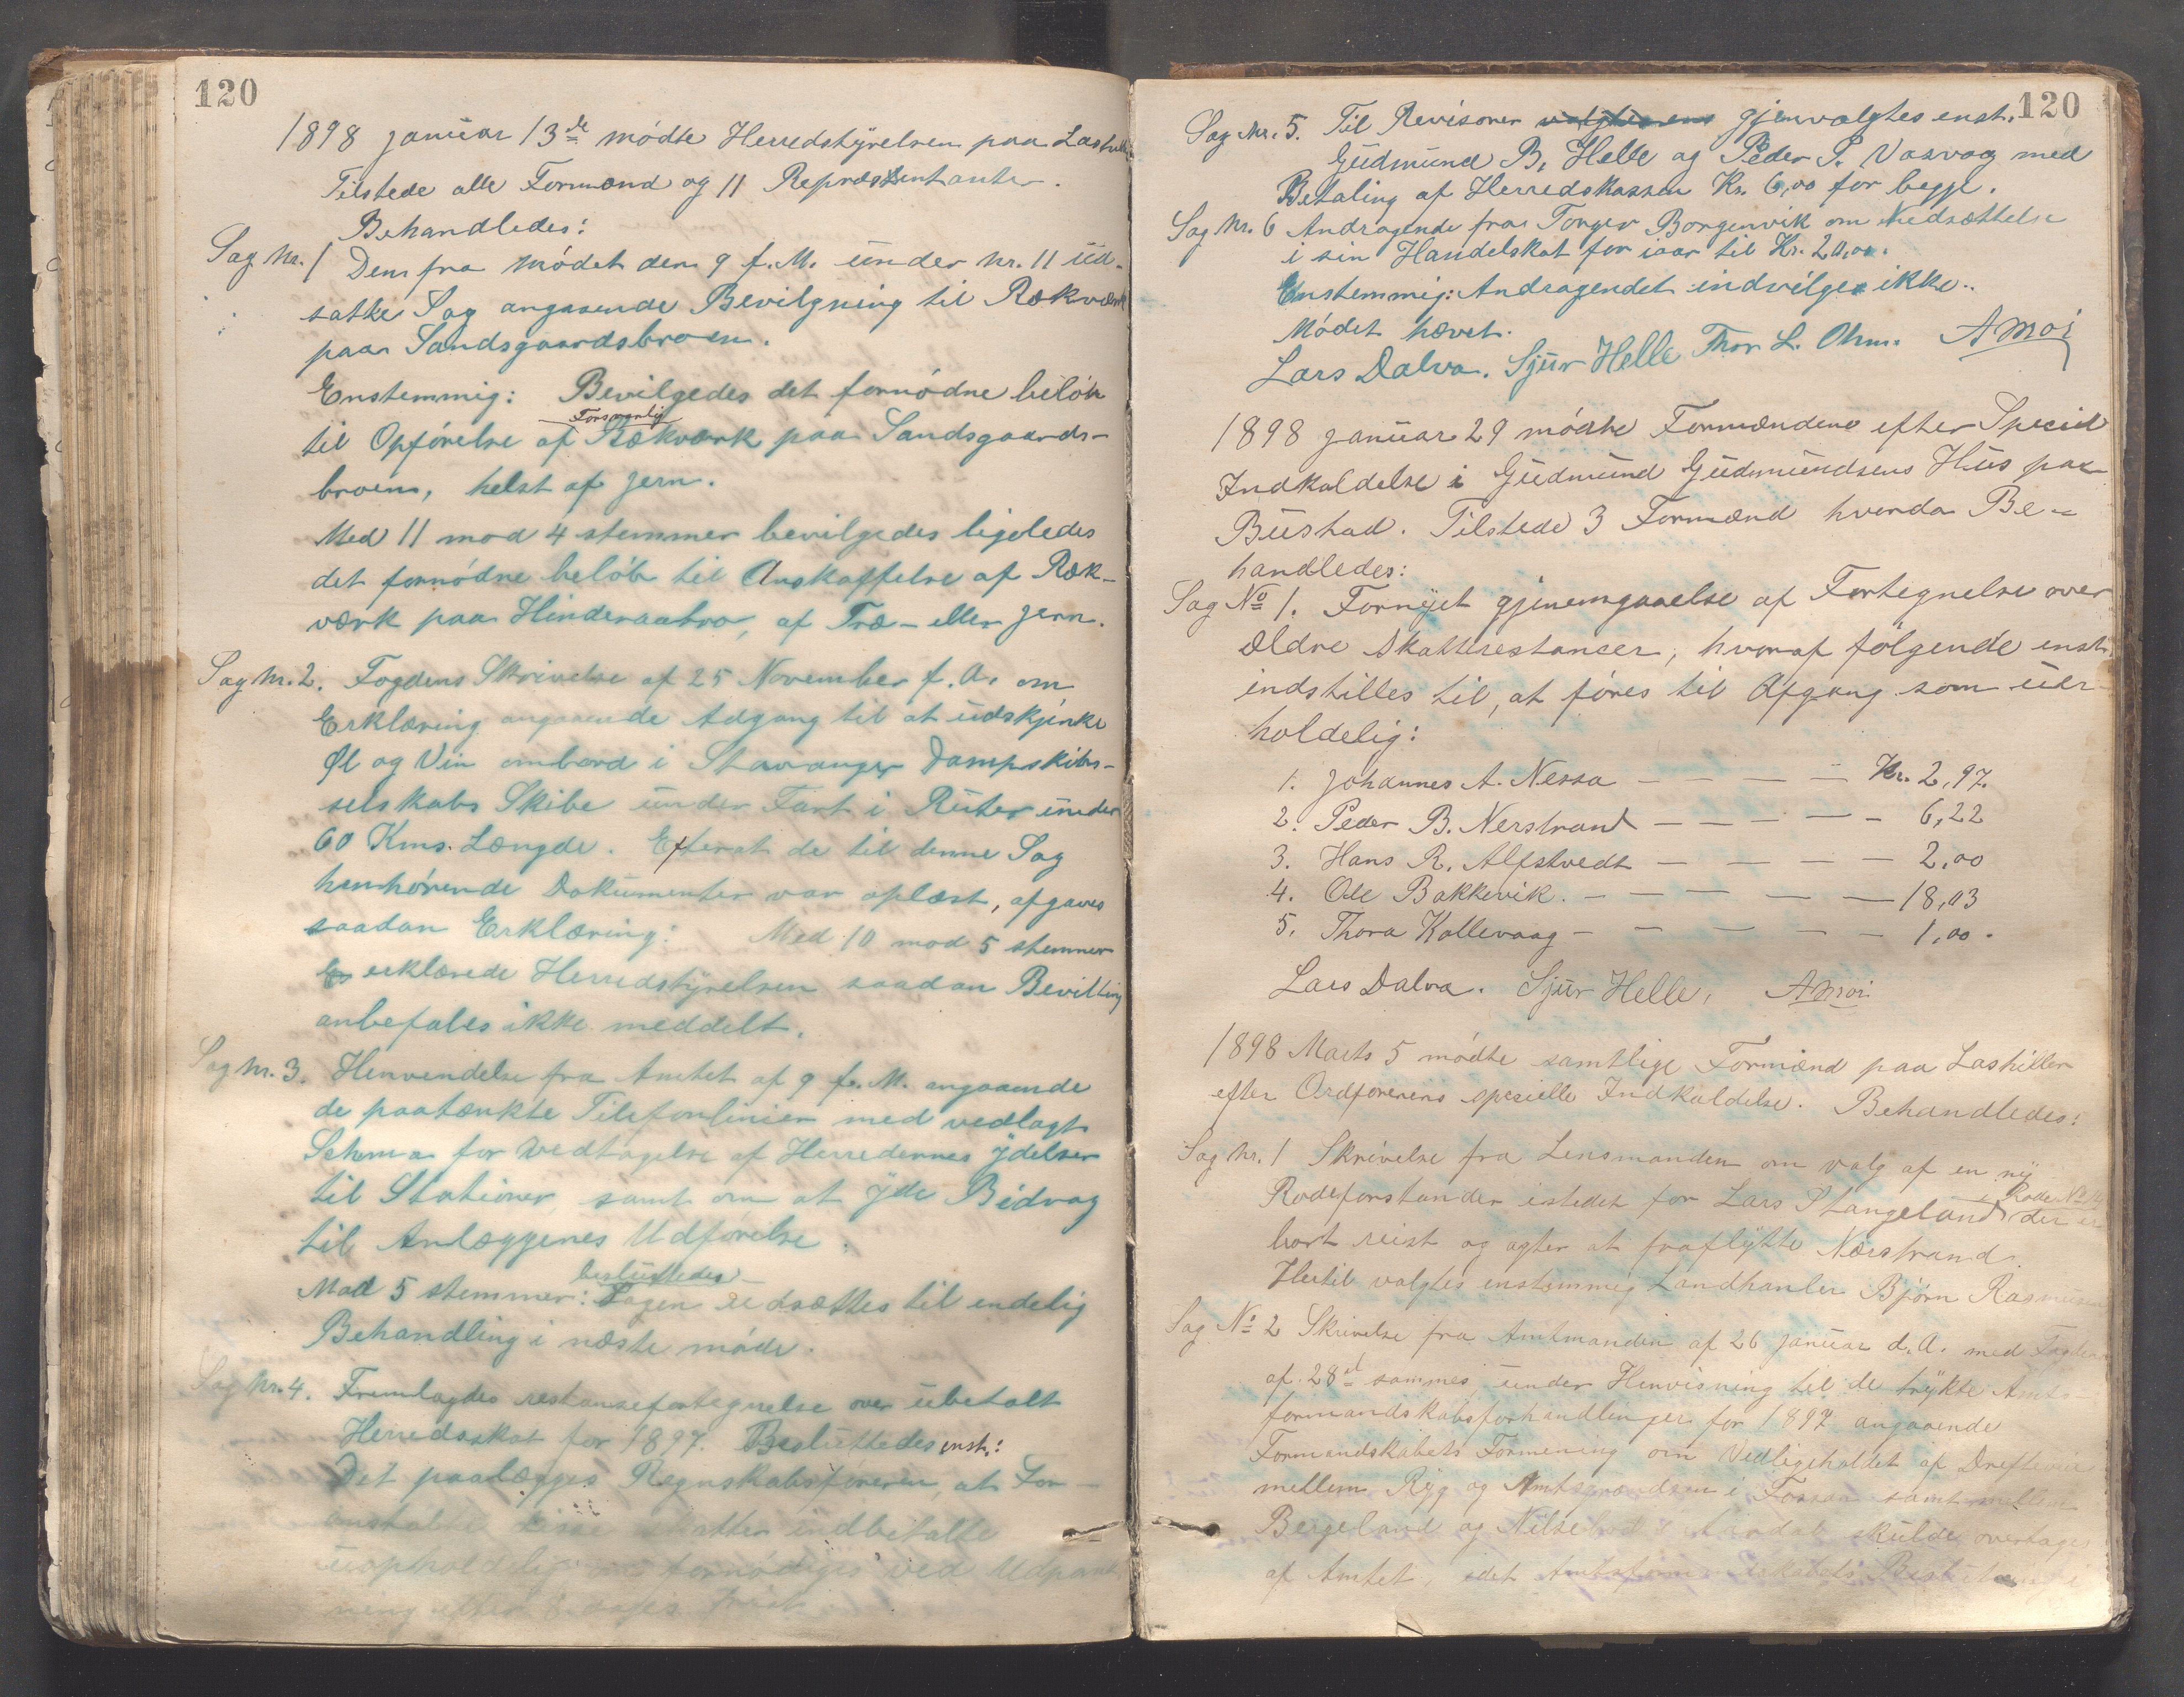 120
1898 Januar 13de mødte Herredstyrelsen paa Lashill
Tilstede alle Formænd og 11 Repræsentanter.
Behandledes:
Sag Nr. 1 Den fra Mødet den 9 f. M. under Nr. 11 ud-
satte Sag angaaende Bevilgning til Rækværk
paa Sandsgaardsbroen.
Enstemmig: Bevilgedes det fornødne beløb
til Opførelse af Forsvarlig Rækværk paa Sandsgaards-
broen, helst af Jern.
Med 11 mod 4 stemmer bevilgedes ligeledes
det fornødne beløb til Anskaffelse af Ræk-
værk paa Hinderaabro, af Træ- eller Jern.
Sag Nr. 2. Fogdens Skrivelse af 25 November f. A. om
Erklæring angaaende Adgang til at udskjænke
Øl og Vin ombord i Stavanger Dampskibs-
selskabs Skibe under Fart i Ruter under
60 Kms. Længde. Efterat de til denne Sag
henhørende Dokumenter var oplæst, afgaves
saadan Erklæring: Med 10 mod 5 stemmer
erklærede Herredstyrelsen saadan Bevilling
anbefales ikke meddelt.
Sag Nr. 3. Henvendelse fra Amtet af 9 f. M. angaaende
de paatænkte Telefonlinier med vedlagt
Schema for Vedtagelse af Herredernes Ydelser
til Stationer, samt om at yde Bidrag
til Anlæggenes Udførelse.
Mod 5 stemmer: besluttedes Sagen udsættes til endelig
Behandling i næste møde.
Sag Nr. 4. Fremlagdes restansefortegnelse over ubetalt
Herredsskat for 1897. Besluttedes enst.:
Det paalægges Regnskabsføreren, at For-
anstalte disse skatter indbetalte
uopholdelig om fornødiges ved Udpant-
ning efter 8 dages Frist
120
Sag Nr. 5. Til Revisorer gjenvalgtes enst.
Gudmund B. Helle og Peder P. Vasvag med
Betaling af Herredskassen Kr. 6,00 for begge.
Sag Nr. 6 Andragende fra Torger Borgenvik om Nedsættelse
i sin Handelskat for iaar til Kr. 20,00.
Enstemmig: Andragendet indvilges ikke.
Mødet hævet.
Lars Dalva. Sjur Helle Thor L. Ohm. A Moi
1898 Januar 29 mødte Formændene efter Speciel
Indkaldelse i Gudmund Gudmundsens Hus paa
Bustad. Tilstede 3 Formænd hvorda Be-
handledes:
Sag No 1. Fornyet gjenemgaaelse af Fortegnelse over
ældre Skatterestancer, hvoraf følgende enst.
indstilles til, at føres til Afgang som uer-
holdelig:
1. Johannes A. Nessa — — — — — Kr. 2,97.
2. Peder B. Nerstrand — — — — — 6,22
3. Hans R. Alfstvedt — — — — — 2,00
4. Ole Bakkevik. — — — — — 18,03
5. Thora Kallevaag — — — — — 1,00.
Lars Dalva. Sjur Helle, A Moi
1898 Marts 5 mødte samtlige Formænd paa Lashiller
efter Ordførerens specielle Indkaldelse. Behandledes:
Sag Nr. 1 Skrivelse fra Lensmanden om valg af en ny
Rodeforstander istedet for Lars Stangeland i Rode No der er
bort reist og agter at fraflytte Nærstrand.
Hertil valgtes enstemmig Landhanler Bjørn Rasmusen
Sag No 2 Skrivelse fra Amtmanden af 26 Januar d. A. med Fogdens
af 28d sammes, under Henvisning til de trykte Amts-
formandskabsforhandlinger for 1897 angaaende
Formandskabets Formening om Vedligeholdet af
mellem Ryg og Amtsgrændsen i Fossan samt mellem
Bergeland og skulde overtages
af Amtet, idet Amtsformandskabets Beslutning i